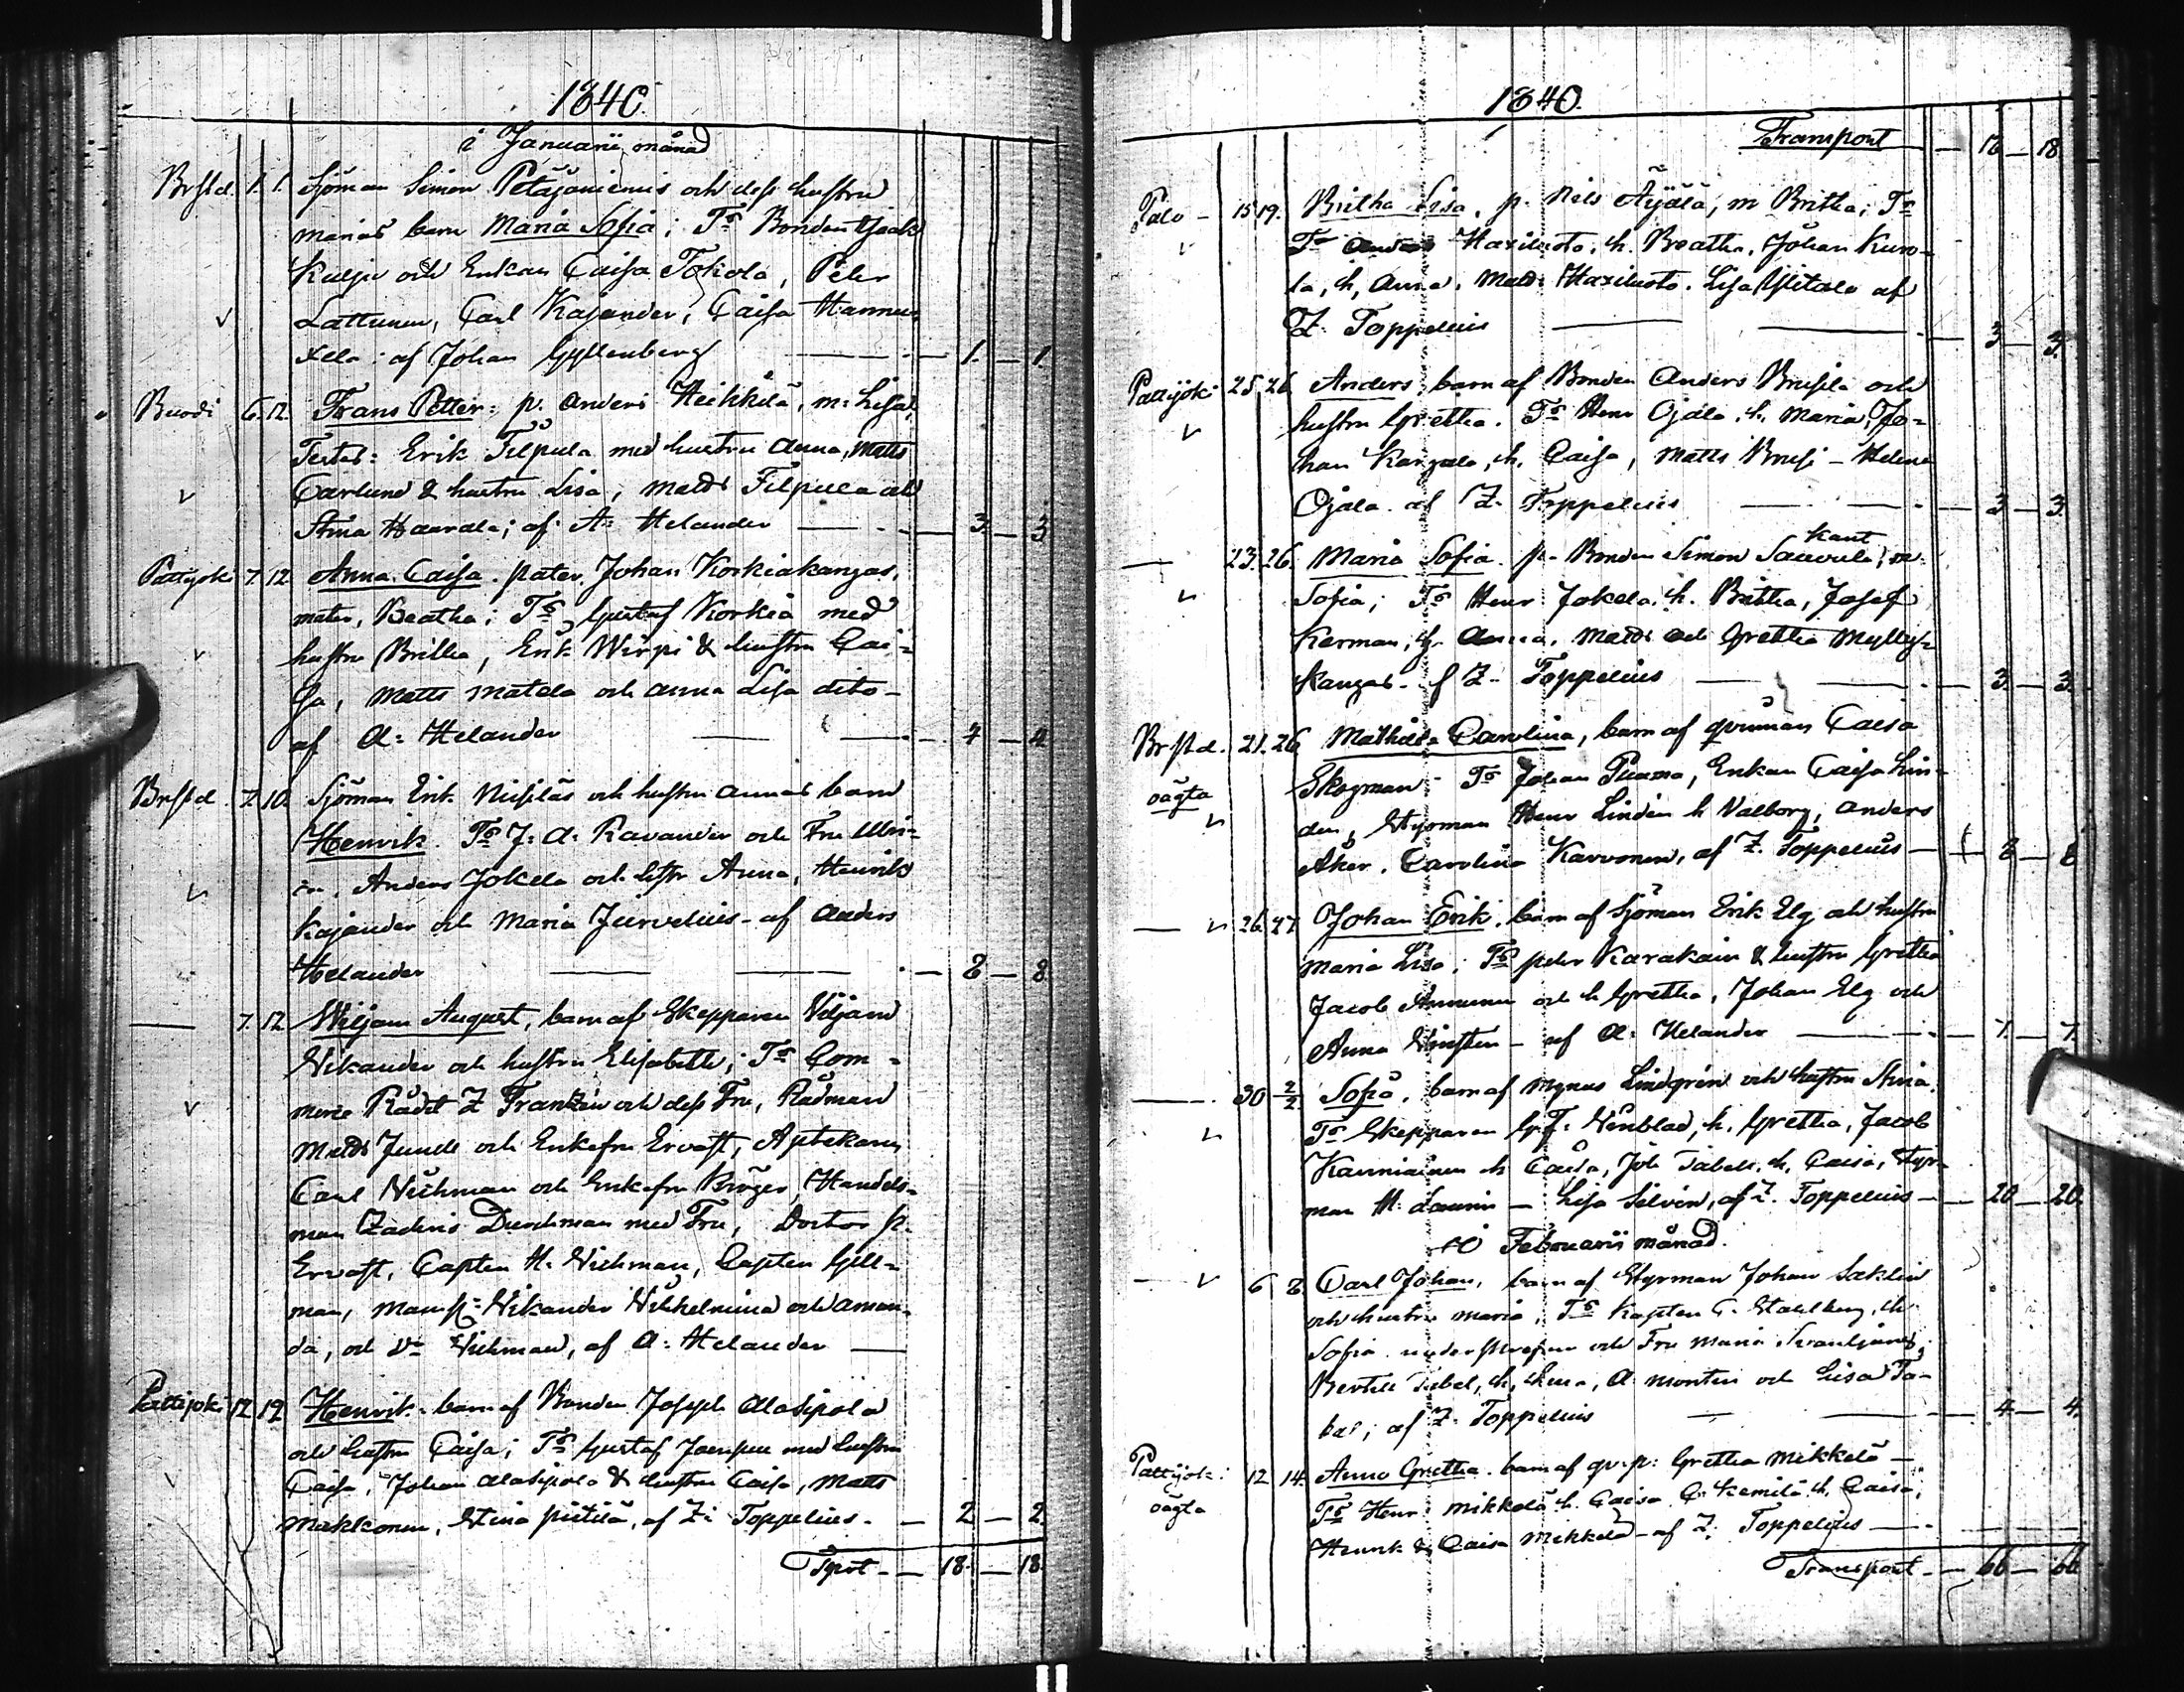 1840.
i Januarii månad
Brstd. 1. 1. Sjöman Simon Petäjäniemis och dess hustru
Marias barn Maria Sofia; Ts Bonden Isaak
Kulju och Enkan Caisa Tokola, Peter
Lattunen, Carl Kajander, Caisa Hannu
xela: af Johan Gyllenberg — 1. — 1.
6. 12. Frans Petter: p. Anders Heikkilä, m: Lisa.
Testes: Erik Filpula med hustru Anna, Matts
Carlund & hustru Lisa, Matts Filpula och
Stina Haarala; af A: Helander — 3. — 3
Pattijoki 7. 12 Anna Caisa. pater, Johan Korkiakangas,
mater, Beatha; Ts Gustaf Korkia med
hustru Britha, Erik Wirpi & hustru Cai-
sa, Matts Matala och Anna Lisa dito -
af A: Helander — 4 — 4
Brstd. 7. 10. Sjöman Erik och hustru Annas barn
Henrik. Ts J: A: Ravander och Fru Ulri-
ca, Anders Jokela och hstr Anna, Henrik
Kajander och Maria Jurvelius - af Anders
Helander — 8 — 8
— 7. 12 Wiljam August, barn af Skepparen Wiljam
Nikander och hustru Elisabeth; Ts Com-
merce Rådet Z Franzén och dess Fru, Rådman
Matts Junell och Enkefru Ervast, Apotekaren
Carl Wichman och Enkefru Höckert, Handels-
man Zachris Durchman med Fru, Doctor
Ervast, Capten H. Wichman, Capten Gell-
man, Mams: Nikander Wilhelmina och Aman-
da, och Wichman, af A: Helander —
Pattijoki 12 19 Henrik. barn af Bonden Joseph Alasipola
och hustru Caisa; Ts Gustaf med hustru
Caisa, Johan Alasipola & hustru Caisa, Matts
Makkonen, Stina af Z: Toppelius. — 2 — 2.
Tprt — 18. — 18.
1840.
Transport — 18 — 18
Palo — 15 19. Britha Lisa, p. Nils Äijälä, m Britha; Ts
Anders Haxiluoto, h. Beatha, Johan Kuro-
la, h, Anna, Matts Haxiluoto. Lisa Ylitalo af
Z. Toppelius — 3 — 3.
Pattijoki 25. 26. Anders, barn af Bonden Anders Brusila och
hustru Gretha. Ts Henr Ojala, h. Maria, Jo-
han Kangala, h. Caisa, Matts Brusi - Helena
Ojala. af Z. Toppelius — 3 — 3.
— 23. 26. Maria Sofia. p. Bonden Simon Sauvula, m
Sofia; Ts Henr Jokela, h. Britha, Josef
Kerman, h. Anna. Matts och Gretha Mylly-
kangas. af Z. Toppelius — 3. — 3.
Brstd. 21. 26 Mathilda Carolina, barn af qvinnan Caisa
oägta Skogman. Ts Johan Puama, Enkan Caisa Lin-
den, Styrman Henr Linden h Valborg, Anders
Åker, Carolina Karvonen, af Z. Toppelius — 8 — 8
— 26. 27 Johan Erik, barn af Sjöman Erik Elg och hustru
Maria Lisa; Ts peter Karakain & hustru Gretha
Jacob Annunen och h Gretha, Johan Elg och
Anna — af A: Helander — 7. — 7.
— 30 2/2 Sofia, barn af Magnus Lindgrén och hustru Stina.
Ts Skepparen G. F: Wenblad, h. Gretha, Jacob
Kanniainen h Caisa, Joh Tabell, h, Caisa, Styr-
man H: Laurin — Lisa Silvén, af Z. Toppelius — 20 — 20.
i Februarii månad.
— 6 8. Carl Johan, barn af Styrman Johan Saklin
och hustru Maria, Ts Kapten C. Stahlberg, h
Sofia. och Fru Maria
Bertill Tabel, h, Anna, A: Montin och Lisa Ta-
bal; af Z: Toppelius — 4 — 4.
Pattijoki 12 14. Anna Gretha, barn af qv.p: Gretha Mikkelä —
oägta Ts Henr: Mikkelä h. Caisa, C. Kemilä h. Caisa;
Henrik & Caisa Mikkelä - af Z: Toppelius —
Transport — 66 — 66